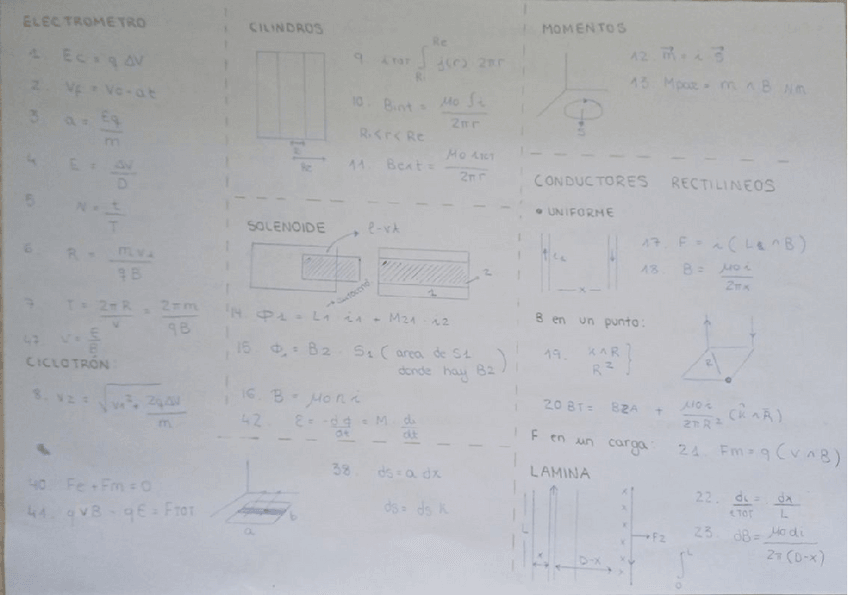 ELECTROMETRO
1. Ec = q ΔV
2. Vf = Vo - at
3. a = Eq / m
4. E = ΔV / D
5. N = t / T
6. R = m v2 / qB
7. T = 2πR / v = 2πm / qB
V = E / B
CICLOTRÓN
8. v2 = √(v1² + 2q ΔV / m)
40. Fe + Fm = 0
41. qvB - qE = FTOT
CILINDROS
9. iTOT ∫ j(r) 2πr
Re
R
10. Bint = μo ∫i / 2πr
Ri < r < Re
11. Bext = μo iTOT / 2πr
Re
SOLENOIDE
2
1
14. Φ1 = L1 i1 + M21 · i2
15. Φ1 = B2 · S1 (area de S1
donde hay B2)
16. B = μo n i
42. Ɛ = -dφ / dt = M · di / dt
38. ds = a dx
ds = ds k
a
b
MOMENTOS
S
12. m⃗ = i S⃗
13. Mpar = m ∧ B Nm
CONDUCTORES RECTILINEOS
• UNIFORME
x
17. F = i (L ∧ B)
18. B = μo i / 2πx
B en un punto:
R
20 BT = B2A + μo i / 2πR² (k̂ ∧ R̄)
F en un carga: 21. Fm = q (v ∧ B)
LAMINA
L
x
D-x
F2
22. di / iTOT = dx / L
23. dB = μo di / 2π(D-x)
∫
L
0